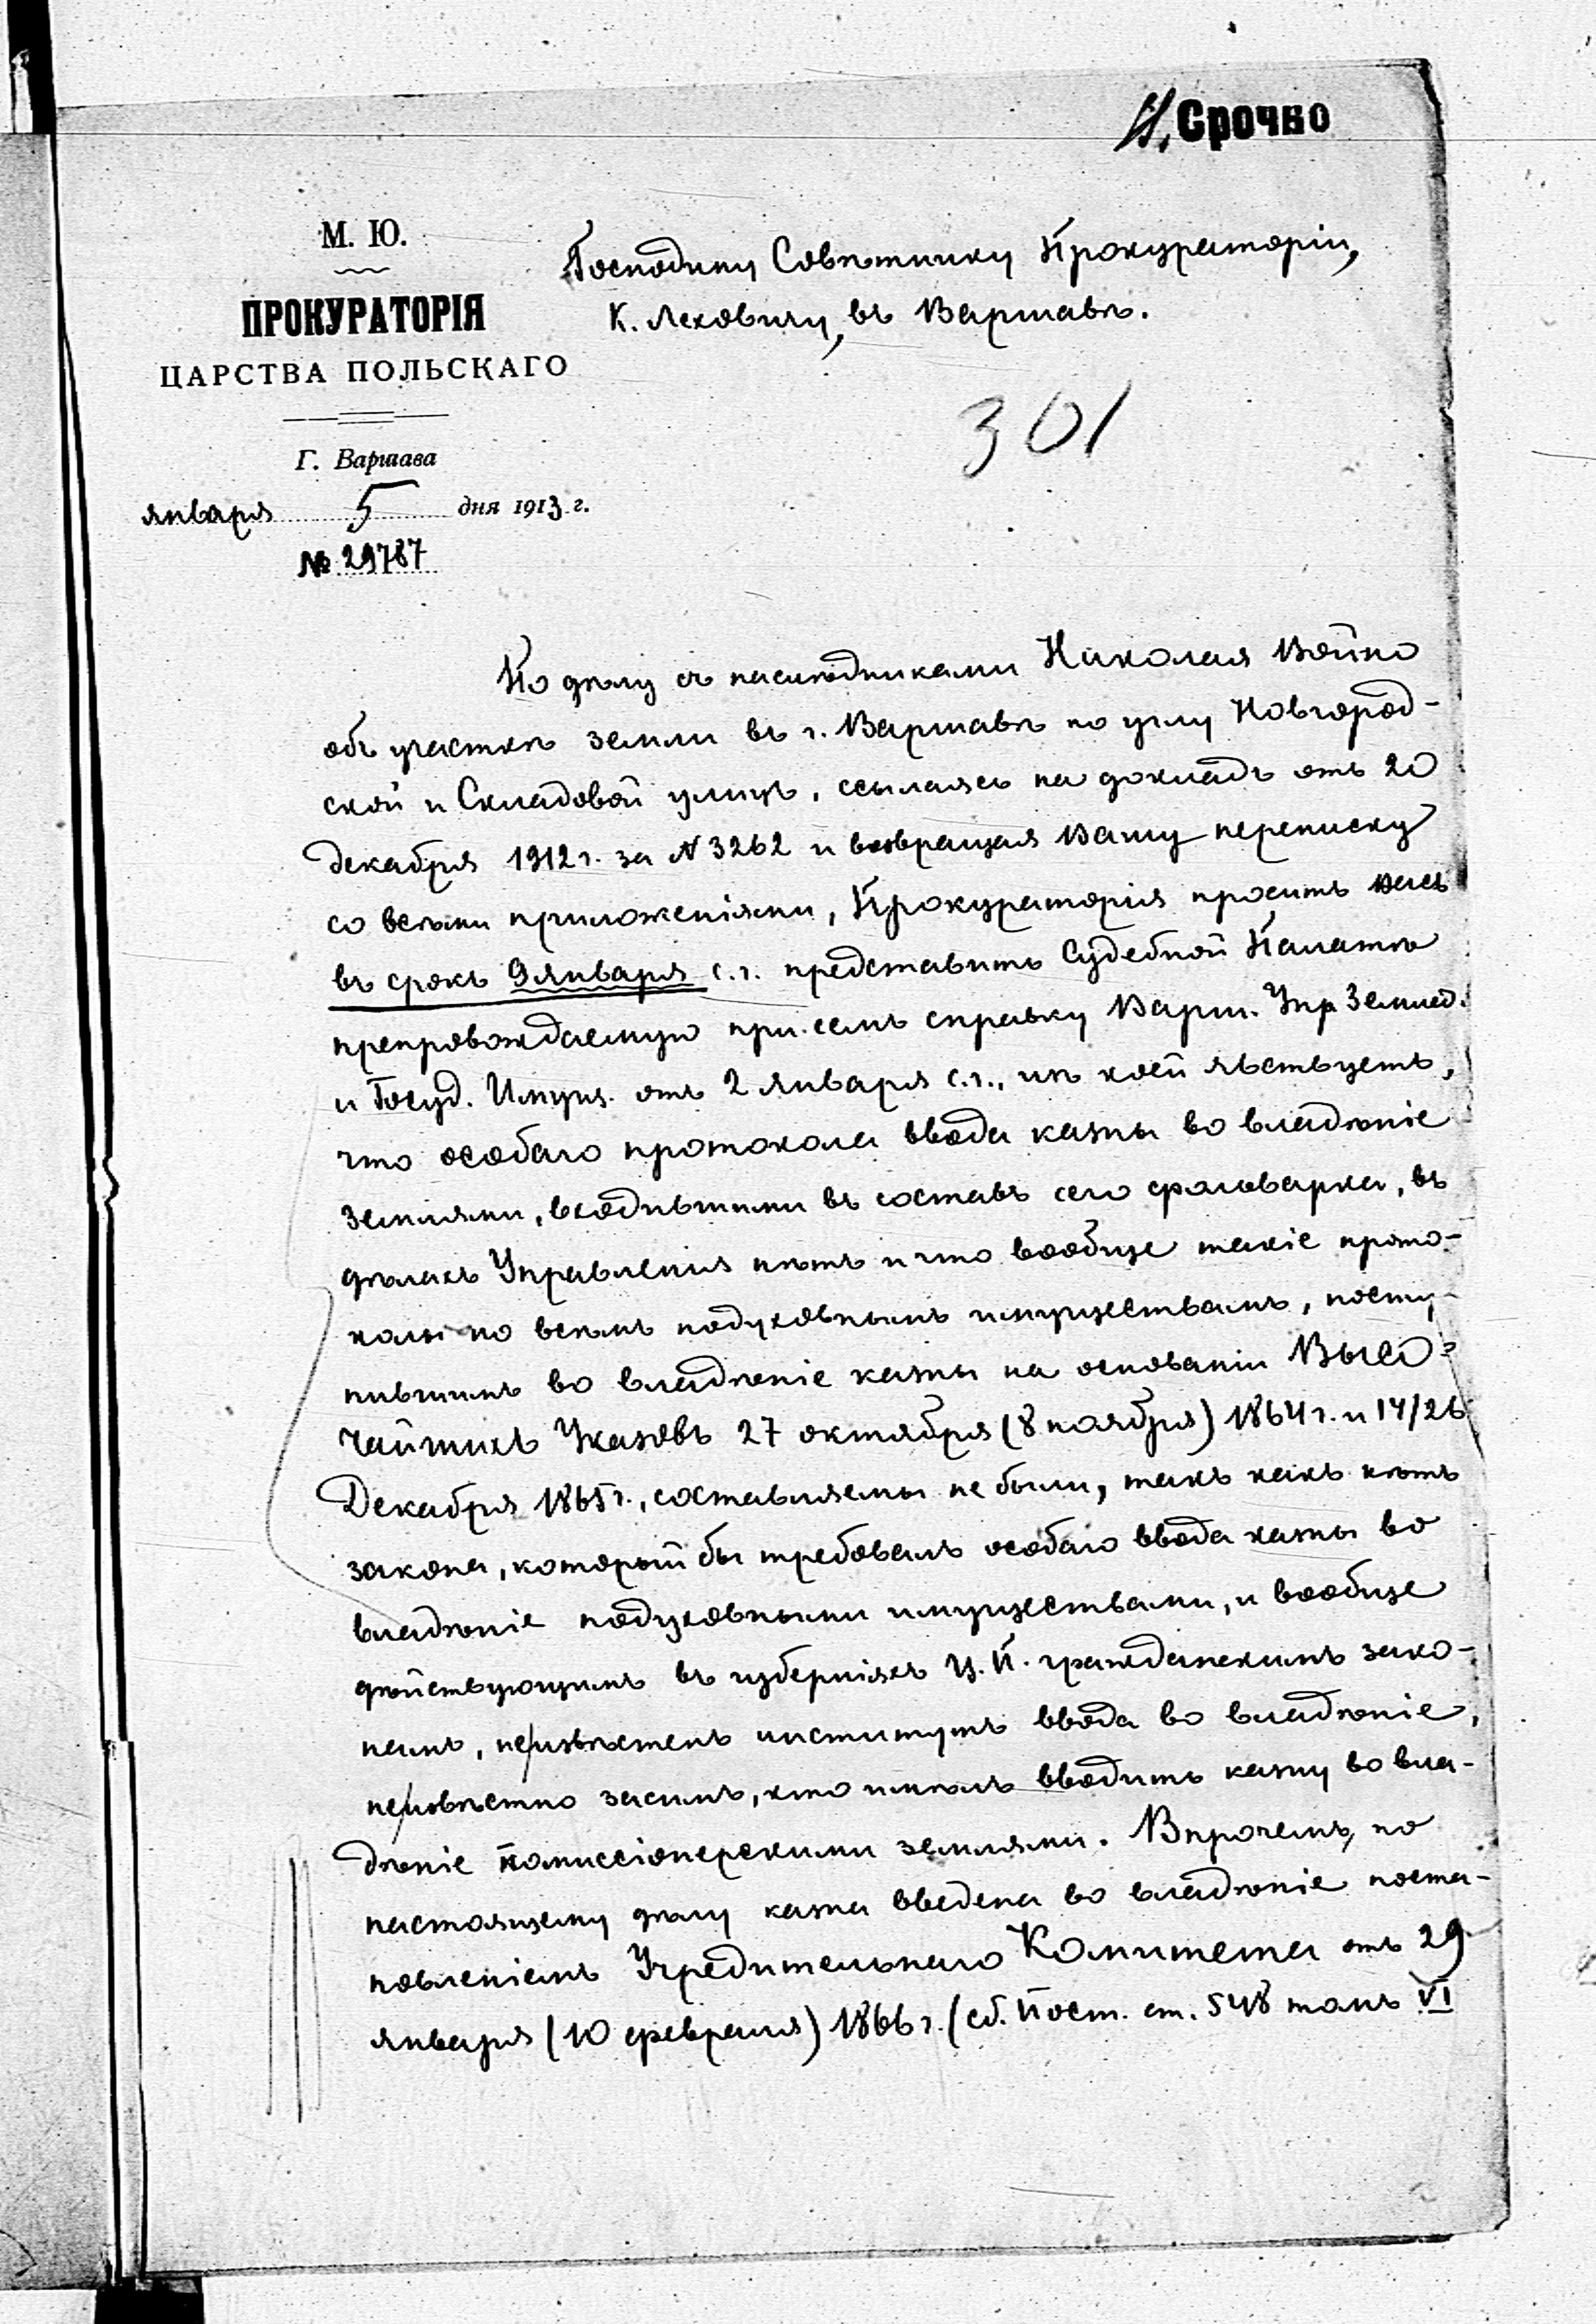 Срочно
М. Ю.
ПРОКУРАТОРІЯ
ЦАРСТВА ПОЛЬСКАГО
Г. Варшава
января 5 дня 1913 г.
№ 29787
Господину Совѣтнику Прокураторіи,
К. Леховичу, въ Варшавѣ.
301
По дѣлу съ наслѣдниками Николая Войно
объ участкѣ земли въ г. Варшавѣ по углу Новгород-
ской и Складовой улицъ, ссылаясь на докладъ отъ 20
декабря 1912 г. за № 3262 и возвращая Вашу переписку
со всѣми приложеніями, Прокураторія проситъ Васъ
въ срокъ 9 января с. г. представить Судебной Палатѣ
препровождаемую при семъ справку Варш. Упр. Землед.
и Госуд. Имущ. отъ 2 января с. г., изъ коей явствуетъ,
что особаго протокола ввода казны во владѣніе
землями, входившими въ составъ сего фольварка, въ
дѣлахъ Управленія нѣтъ и что вообще такіе прото-
колы по всѣмъ подуховнымъ имуществамъ, посту-
пившимъ во владѣніе казны на основаніи Высо-
чайшихъ Указовъ 27 октября (8 ноября) 1864 г. и 14/26
Декабря 1865 г., составляемы не были, такъ какъ нѣтъ
закона, который бы требовалъ особаго ввода казны во
владѣніе подуховными имуществами, и вообще
дѣйствующимъ въ губерніяхъ Ц. П. гражданскимъ зако-
намъ, неизвѣстенъ институтъ ввода во владѣніе,
неизвѣстно засимъ, кто имѣлъ вводить казну во вла-
дѣніе помиссіонерскими землями. Впрочемъ, по
настоящему дѣлу казна введена во владѣніе поста-
новленіемъ Учредительнаго Комитета отъ 29
января (10 февраля) 1866 г. (сб. Пост. ст. 548 томъ VI